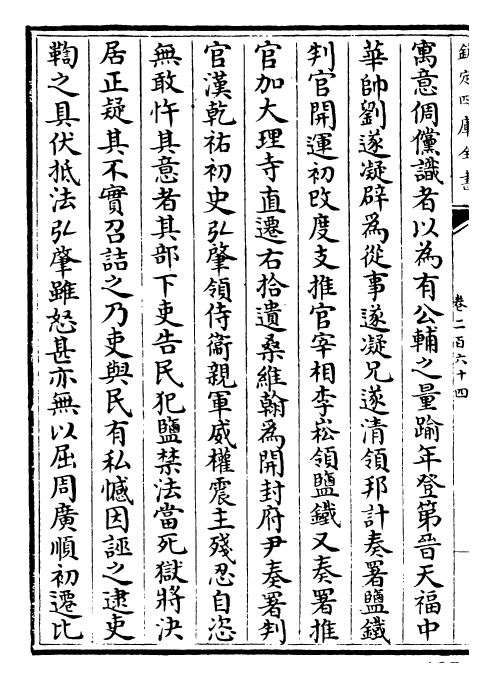 欽定四庫全書
卷二百六十四
寓意倜儻識者以為有公輔之量踰年登第晉天福中
華帥劉遂凝辟為從事遂凝兄遂清領邦計奏署鹽鐵
判官開運初改度支推官宰相李崧領鹽鐵又奏署推
官加大理寺直遷右拾遺桑維翰為開封府尹奏署判
官漢乾祐初史弘肇領侍衞親軍威權震主殘忍自恣
無敢忤其意者其部下吏告民犯鹽禁法當死獄將決
居正疑其不實召詰之乃吏與民有私憾因誣之逮吏
鞫之具伏抵法弘肇雖怒甚亦無以屈周廣順初遷比